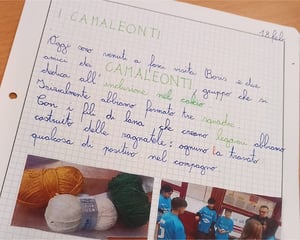 I CAMALEONTI
18 feb
Oggi sono venuti a farci visita Boris e due
amici dei CAMALEONTI, gruppo che si
dedica all'inclusione nel calcio
Inizialmente abbiamo formato tre squadre
Con i fili di lana che creano legami abbiamo
costruito delle ragnatele: ognuno ha trovato
qualcosa di positivo nel compagno